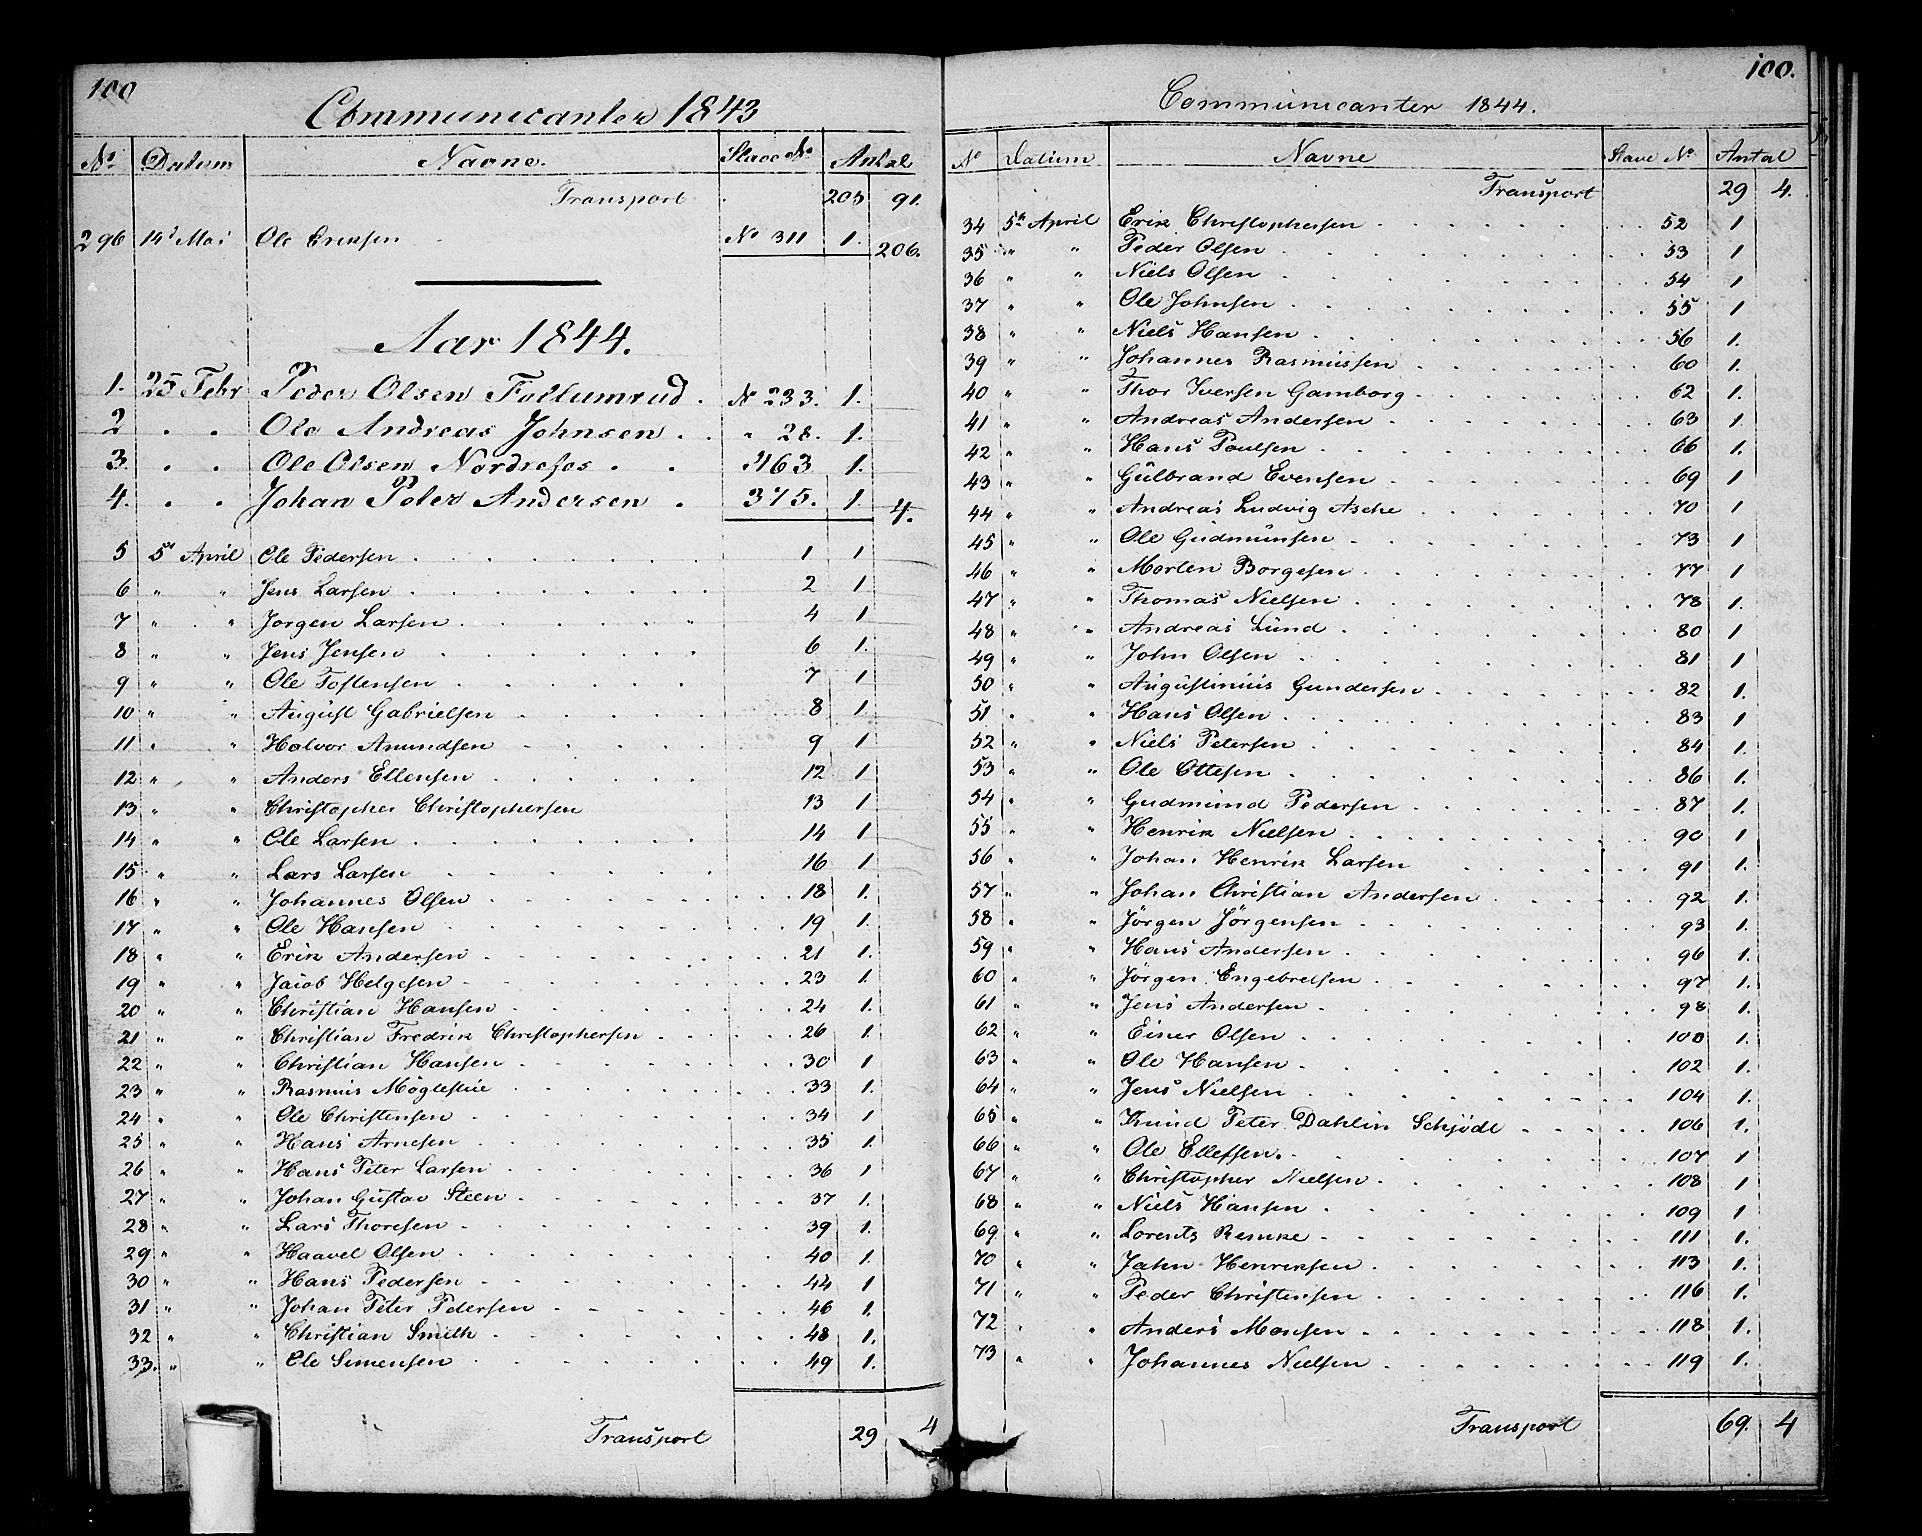 100
Communicanter 1843
No. Datum Navne. Slave No Antal
Transport 205 91.
296 14de Mai Ole Eriksen No 311 1. 206.
Aar 1844.
1. 25 Febr Peder Olsen Follumrud. No 233. 1.
2 . . Ole Andreas Johnsen . . " 28. 1.
3. . . Ole Olsen Nordrefos . . "163 1.
4. . . Johan Peter Andersen . 375. 1. 4.
5 5t April Ole Pedersen 1 1
6 " " Jens Larsen 2 1
7 " " Jorgen Larsen 4 1
8 " " Jens Jensen 6 1.
9 " " Ole Tostensen 7 1
10 " " August Gabrielsen 8 1.
11 " " Halvor Anundsen 9 1
12 " " Anders Ellensen 12 1
13 " " Christopher Christophersen 13 1
14 " " Ole Larsen 14 1
15 " " Lars Larsen 16 1
16 " " Johannes Olsen 18 1.
17 " " Ole Hansen 19 1.
18 " " Erik Andersen 21 1.
19 " " Jacob Helgesen 23 1.
20 " " Christian Hansen 24 1.
21 " " Christian Fredrik Christophersen 26 1.
22 " " Christian Hansen 30 1
23 " " Rasmus Møglestue 33 1.
24 " " Ole Christensen 34 1
25 " " Hans Arnesen 35 1.
26 " " Hans Peter Larsen 36 1
27 " " Johan Gustav Steen 37 1.
28 " " Lars Thoresen 39 1.
29 " " Haavel Olsen 40 1.
30 " " Hans Pedersen 44 1
31 " " Johan Peter Pedersen 46 1.
32 " " Christian Smith 48 1.
33. " " Ole Simensen 49 1.
Transport 29 4
100.
Communicanter 1844.
No Datum Navne Slave No. Antal
Transport 29 4.
34 5te April Erik Christophersen 52 1
35 " " Peder Olsen 53 1
36 " " Niels Olsen 54 1
37 " " Ole Johnsen 55 1
38 " " Niels Hansen 56 1.
39 " " Johannes Rasmussen 60 1.
40 " " Thor Iversen Gamborg 62 1.
41 " " Andreas Andersen 63 1.
42 " " Hans Poulsen 66 1.
43 " " Gulbrand Evensen 69 1
44 " " Andreas Ludvig Asche 70 1
45 " " Ole Gudmunsen 73 1
46 " " Morten Borgesen 77 1
47 " " Thomas Nielsen 78 1.
48 " " Andreas Lund 80 1
49 " " John Olsen 81 1
50 " " Augustinius Gundersen 82 1.
51 " " Hans Olsen 83 1
52 " " Niels Petersen 84 1.
53 " " Ole Ottesen 86 1.
54 " " Gudmund Pedersen 87 1.
55 " " Henrik Nielsen 90 1
56 " " Johan Henrik Larsen 91 1.
57 " " Johan Christian Andersen 92 1.
58 " " Jörgen Jörgensen 93 1.
59 " " Hans Andersen 96 1.
60 " " Jörgen Engebretsen 97 1.
61 " " Jens Andersen 98 1.
62 " " Einer Olsen 100 1.
63 " " Ole Hansen 102 1.
64 " " Jens Nielsen 104 1.
65 " " Knud Peter Dahlin Schjödt 106 1.
66 " " Ole Ellefsen. 107 1
67 " " Christopher Nielsen 108 1
68 " " Niels Hansen 109 1
69 " " Lorents Remke 111 1.
70 " " Jahn Henriksen 113 1.
71 " " Peder Christensen 116 1.
72 " " Anders Monsen 118 1.
73 " " Johannes Nielsen 119 1.
Transport 69. 4